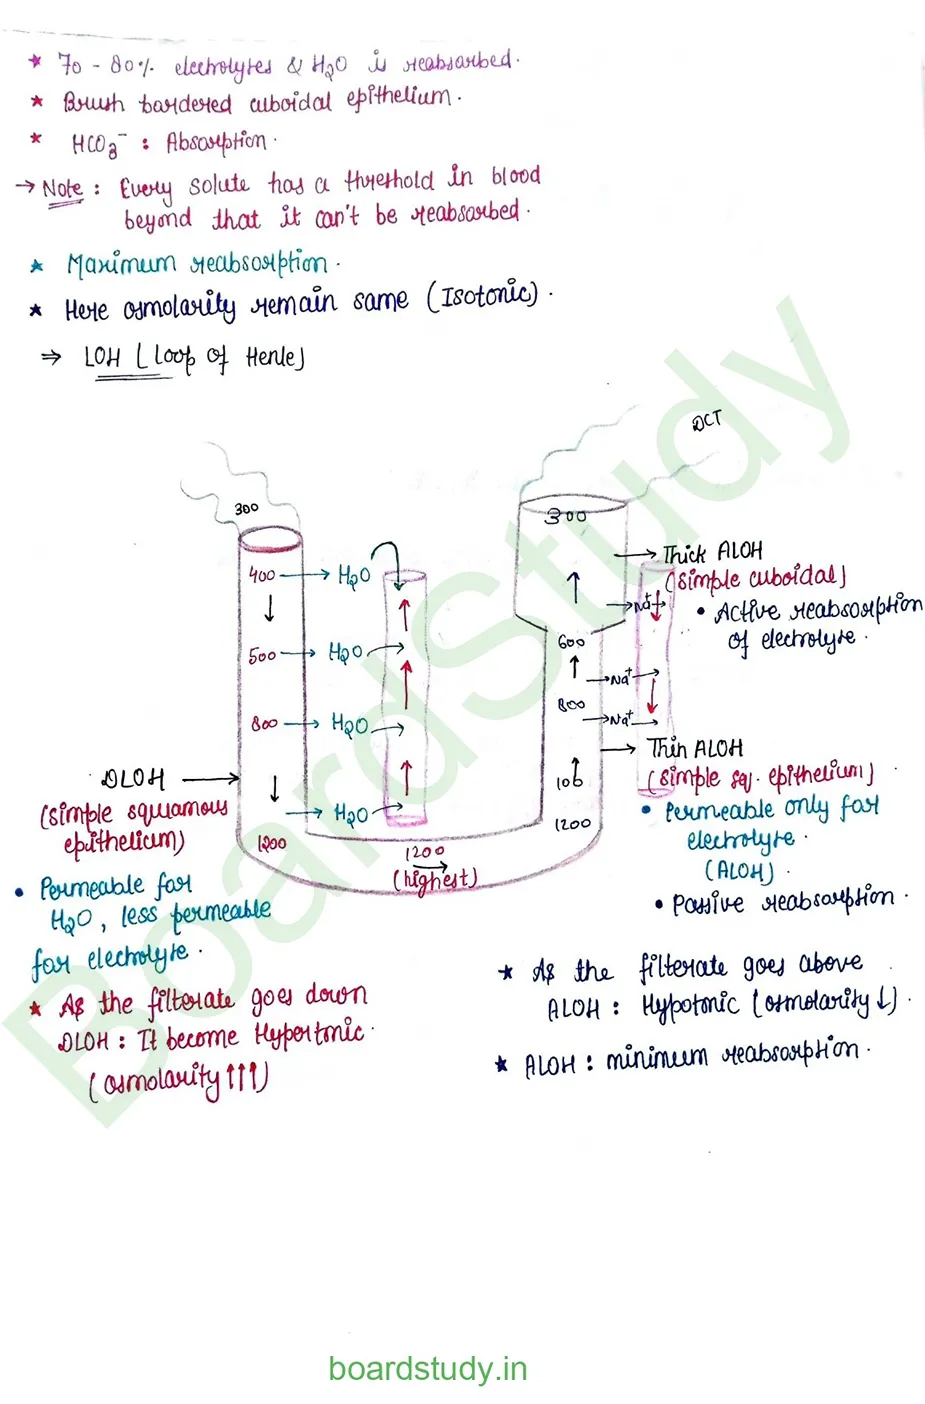 * 70 - 80% electrolytes & H₂O is reabsorbed.
* Brush bordered cuboidal epithelium.
* HCO₃⁻ : Absorption.
→ Note : Every solute has a threshold in blood
beyond that it can't be reabsorbed.
* Maximum reabsorption.
* Here osmolarity remain same (Isotonic).
⇒ LOH (Loop of Henle)
DCT
300
300
400 → H₂O
Thick ALOH
(simple cuboidal)
Na⁺
• Active reabsorption
of electrolyte.
500 → H₂O
600
Na⁺
800 → H₂O
800
Na⁺
Thin ALOH
(simple sq. epithelium)
DLOH
(simple squamous
epithelium)
H₂O
100
1200
1200
1200
(highest)
• Permeable only for
electrolyte.
(ALOH).
• Passive reabsorption.
• Permeable for
H₂O, less permeable
for electrolyte.
* As the filterate goes down
DLOH : It become Hypertonic.
(osmolarity ↑↑↑)
* As the filterate goes above
ALOH : Hypotonic (osmolarity ↓).
* ALOH : minimum reabsorption.
BoardStudy
boardstudy.in